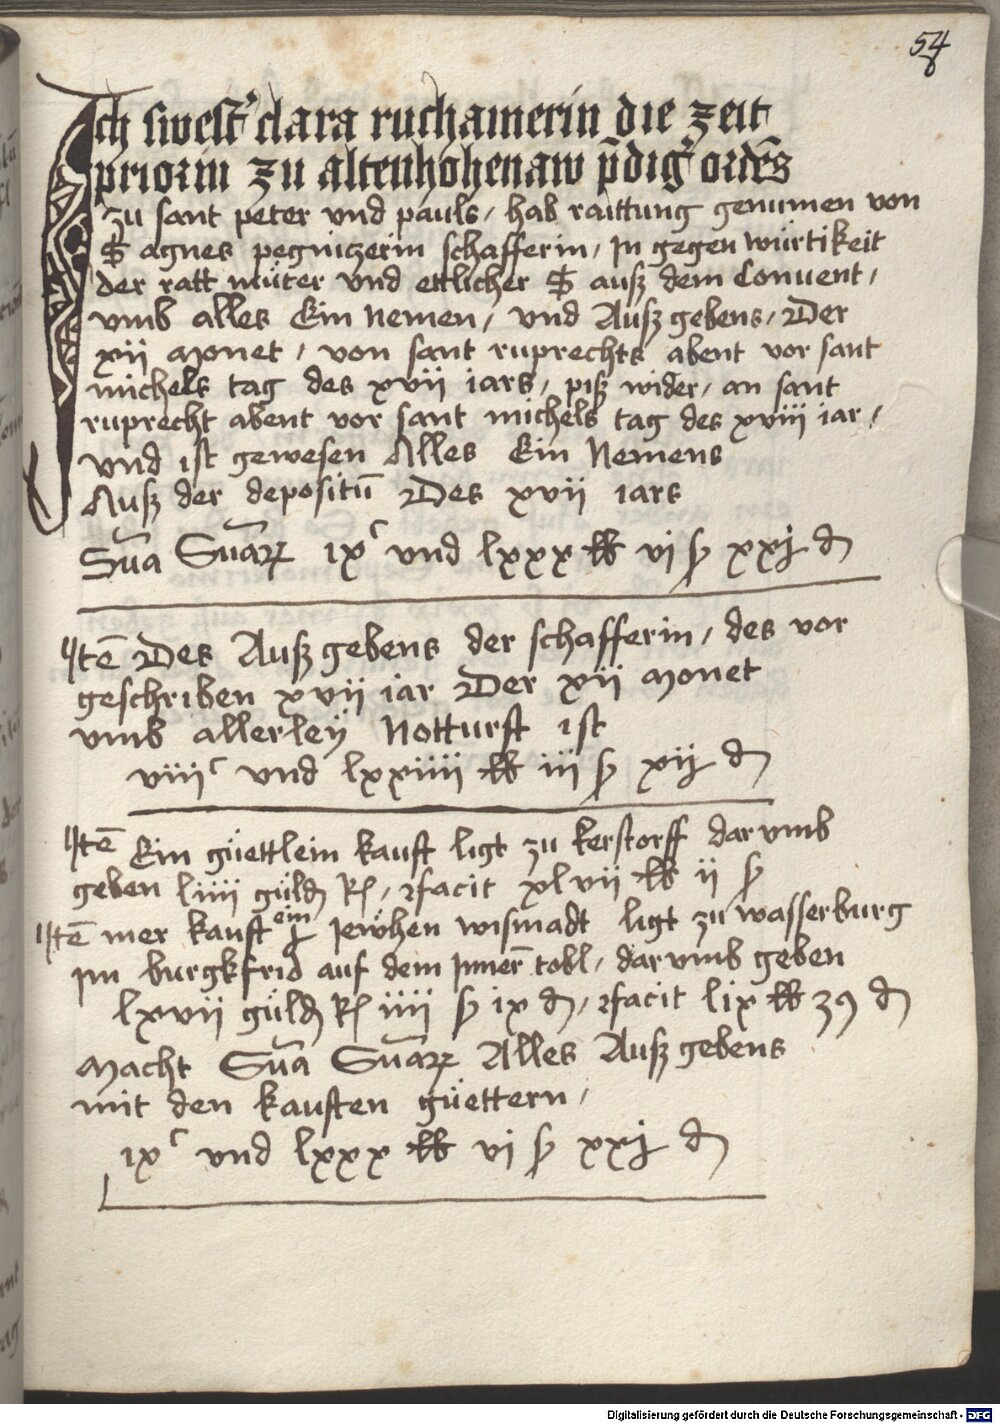 54
Ich swest' clara ruchamerin die zeit
priorin zu altenhohenaw p̄dig' ordēs
zu sant peter vnd pauls / hab raittung genumen von
S agnes pegnitzerin schafferin / In gegen würtikeit
der ratt müter vnd ettlicher S auß dem Conuent /
vmb alles Ein nemen / vnd Auß gebens / Der
xij monet / von sant ruprechts abent vor sant
michels tag des xvij iars / piß wider / an sant
ruprecht abent vor sant michels tag des xviij iar /
vnd ist gewesen Alles Ein Nemens
Auß der depositū Des xvij iars
Sūa Sūaꝝ ixᶜ vnd lxxx ℔ vj ß xxj ₰
Itē Des Auß gebens der schafferin / des vor
geschriben xvij iar Der xij monet
vmb allerleÿ Notturft ist
viijᶜ vnd lxxiiij ℔ iij ß xij ₰
Itē Ein güettlein kauft ligt zu kerstorff dar vmb
geben liiij güld R / facit xlvij ℔ ij ß
Itē mer kauft ein Jewhen wismadt ligt zu wasserburg
im burgkfrid auf dem Inner tobl / dar vmb geben
lxvij güld R iiij ß ix ₰ / facit lix ℔ 39 ₰
macht Sūa Sūaꝝ Alles Auß gebens
mit den kauften güettern /
ixᶜ vnd lxxx ℔ vj ß xxj ₰
Digitalisierung gefördert durch die Deutsche Forschungsgemeinschaft - DFG